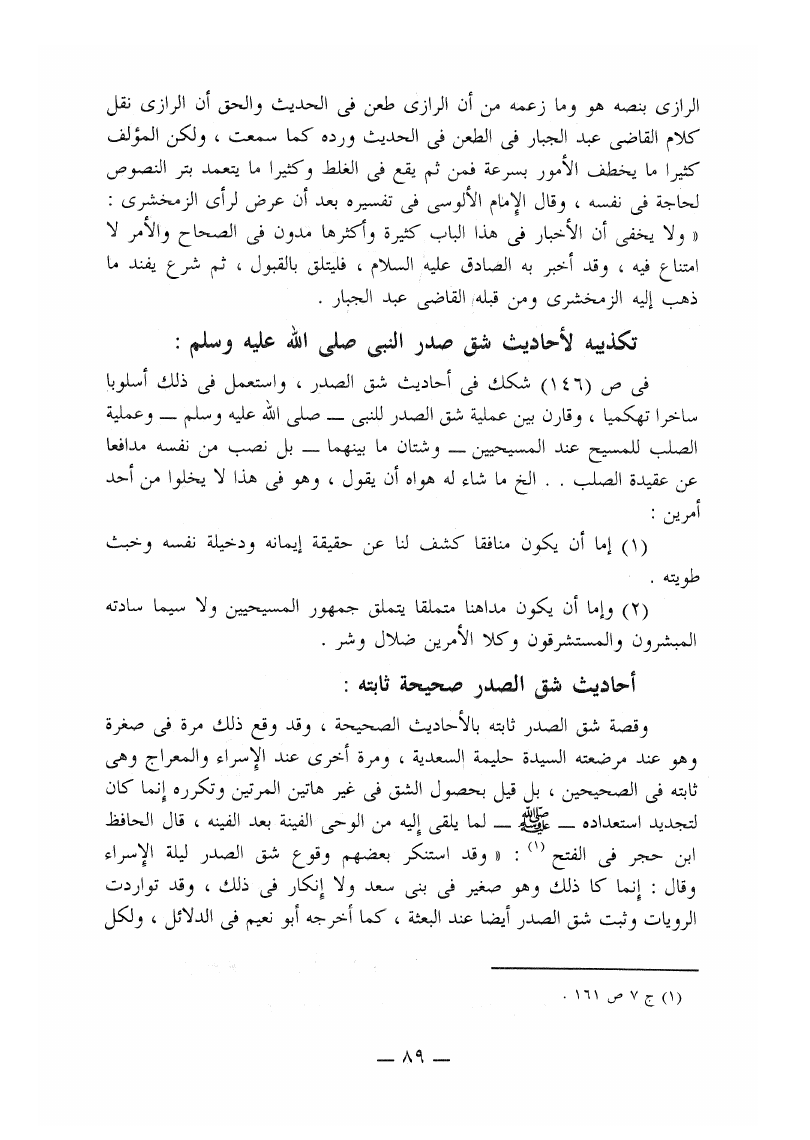 الرازى بنصه هو وما زعمه من أن الرازى طعن فى الحديث والحق أن الرازى نقل
كلام القاضى عبد الجبار فى الطعن فى الحديث ورده كما سمعت ، ولكن المؤلف
كثيرا ما يخطف الأمور بسرعة فمن ثم يقع فى الغلط وكثيرا ما يتعمد بتر النصوص
لحاجة فى نفسه ، وقال الإمام الألوسى فى تفسيره بعد أن عرض لرأى الزمخشرى :
« ولا يخفى أن الأخبار فى هذا الباب كثيرة وأكثرها مدون فى الصحاح والأمر لا
امتناع فيه ، وقد أخبر به الصادق عليه السلام ، فليتلق بالقبول ، ثم شرع يفند ما
ذهب إليه الزمخشرى ومن قبله القاضى عبد الجبار .
تكذيبه لأحاديث شق صدر النبى صلى الله عليه وسلم :
فى ص (١٤٦) شكك فى أحاديث شق الصدر ، واستعمل فى ذلك أسلوبا
ساخرا تهكميا ، وقارن بين عملية شق الصدر للنبى — صلى الله عليه وسلم — وعملية
الصلب للمسيح عند المسيحيين — وشتان ما بينهما — بل نصب من نفسه مدافعا
عن عقيدة الصلب . . الخ ما شاء له هواه أن يقول ، وهو فى هذا لا يخلوا من أحد
أمرين :
(١) إما أن يكون منافقا كشف لنا عن حقيقة إيمانه ودخيلة نفسه وخبث
طويته .
(٢) وإما أن يكون مداهنا متملقا يتملق جمهور المسيحيين ولا سيما سادته
المبشرون والمستشرقون وكلا الأمرين ضلال وشر .
أحاديث شق الصدر صحيحة ثابته :
وقصة شق الصدر ثابته بالأحاديث الصحيحة ، وقد وقع ذلك مرة فى صغرة
وهو عند مرضعته السيدة حليمة السعدية ، ومرة أخرى عند الإسراء والمعراج وهى
ثابته فى الصحيحين ، بل قيل بحصول الشق فى غير هاتين المرتين وتكرره إنما كان
لتجديد استعداده — ﷺ — لما يلقى إليه من الوحى الفينة بعد الفينه ، قال الحافظ
ابن حجر فى الفتح (١) : « وقد استنكر بعضهم وقوع شق الصدر ليلة الإسراء
وقال : إنما كا ذلك وهو صغير فى بنى سعد ولا إنكار فى ذلك ، وقد تواردت
الرويات وثبت شق الصدر أيضا عند البعثة ، كما أخرجه أبو نعيم فى الدلائل ، ولكل
(١) ج ٧ ص ١٦١ .
— ٨٩ —